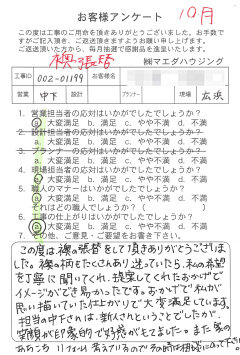 お客様アンケート
10月
この度は工事のご用命を頂きありがとうございました。お手数で
すがご記入頂き、ご返送頂きますようお願い申し上げます。
ご返送頂いた方から、毎月抽選で感謝品を進呈いたします。
襖張替
㈱マエダハウジング
工事ID 002-01199 お客様名
営業 中下 設計 プランナー 現場 広浜
1. 営業担当者の応対はいかがでしたでしょうか?
a. 大変満足 b. 満足 c. やや不満 d. 不満
2. 設計担当者の応対はいかがでしたでしょうか?
a. 大変満足 b. 満足 c. やや不満 d. 不満
a. 大変満足 b. 満足 c. やや不満 d. 不満
4. 現場担当者の応対はいかがでしたでしょうか?
a. 大変満足 b. 満足 c. やや不満 d. 不満
5. 職人のマナーはいかがでしたでしょうか?
a. 大変満足 b. 満足 c. やや不満 d. 不満
それはどの職人でしょうか?
6. 工事の仕上がりはいかがでしたでしょうか?
a. 大変満足 b. 満足 c. やや不満 d. 不満
7. その他、ご意見・ご要望をお書き下さい。
この度は襖の張替をして頂きありがとうございまし
た。襖の柄をたくさんあり迷っていたら、私の希望
を丁寧に聞いてくれ、提案してくれたおかげで
イメージができ易かったです。おかげで私が
思い描いていた仕上がりで大変満足しています。
担当の中下さんは、新人さんということでしたが、
笑顔が印象的で好感がもてました。また家の